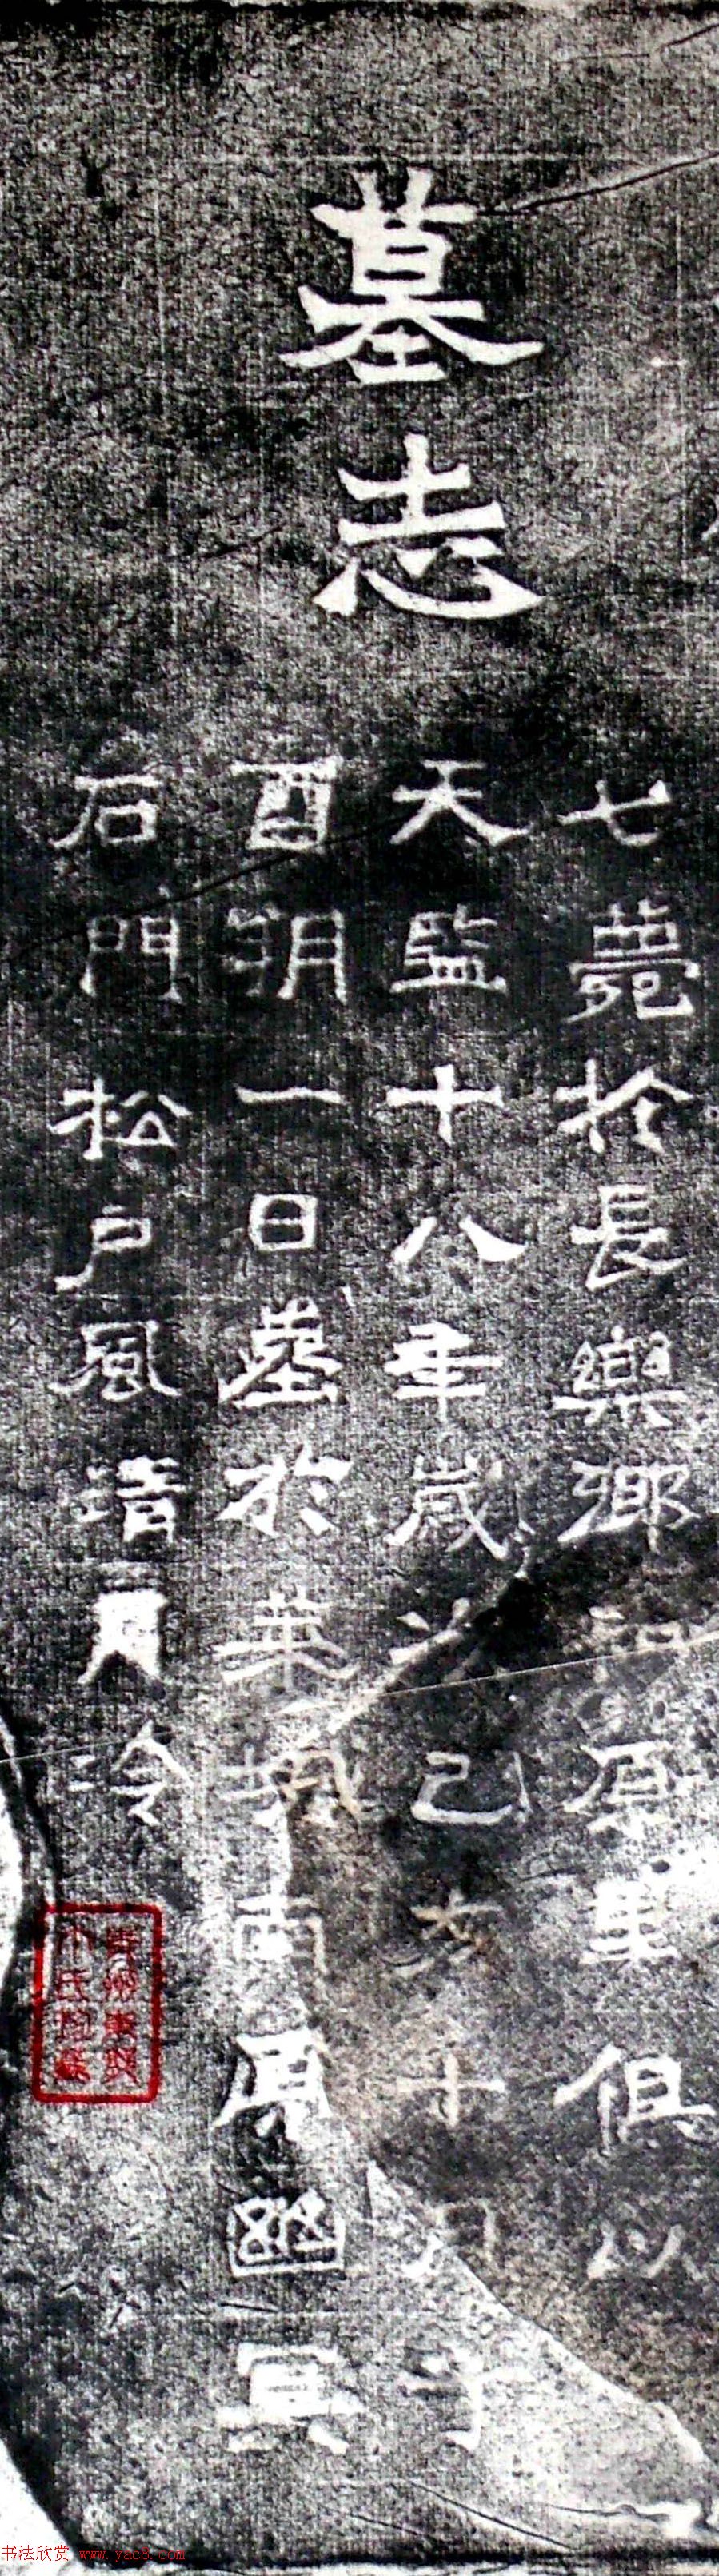 墓志
七薨於長樂鄉和原里俱以
天監十八年歲次己亥十月丁
酉朔一日塟於華城南原幽冥
石門松戶風清夏冷
书法欣赏 www.yac8.com